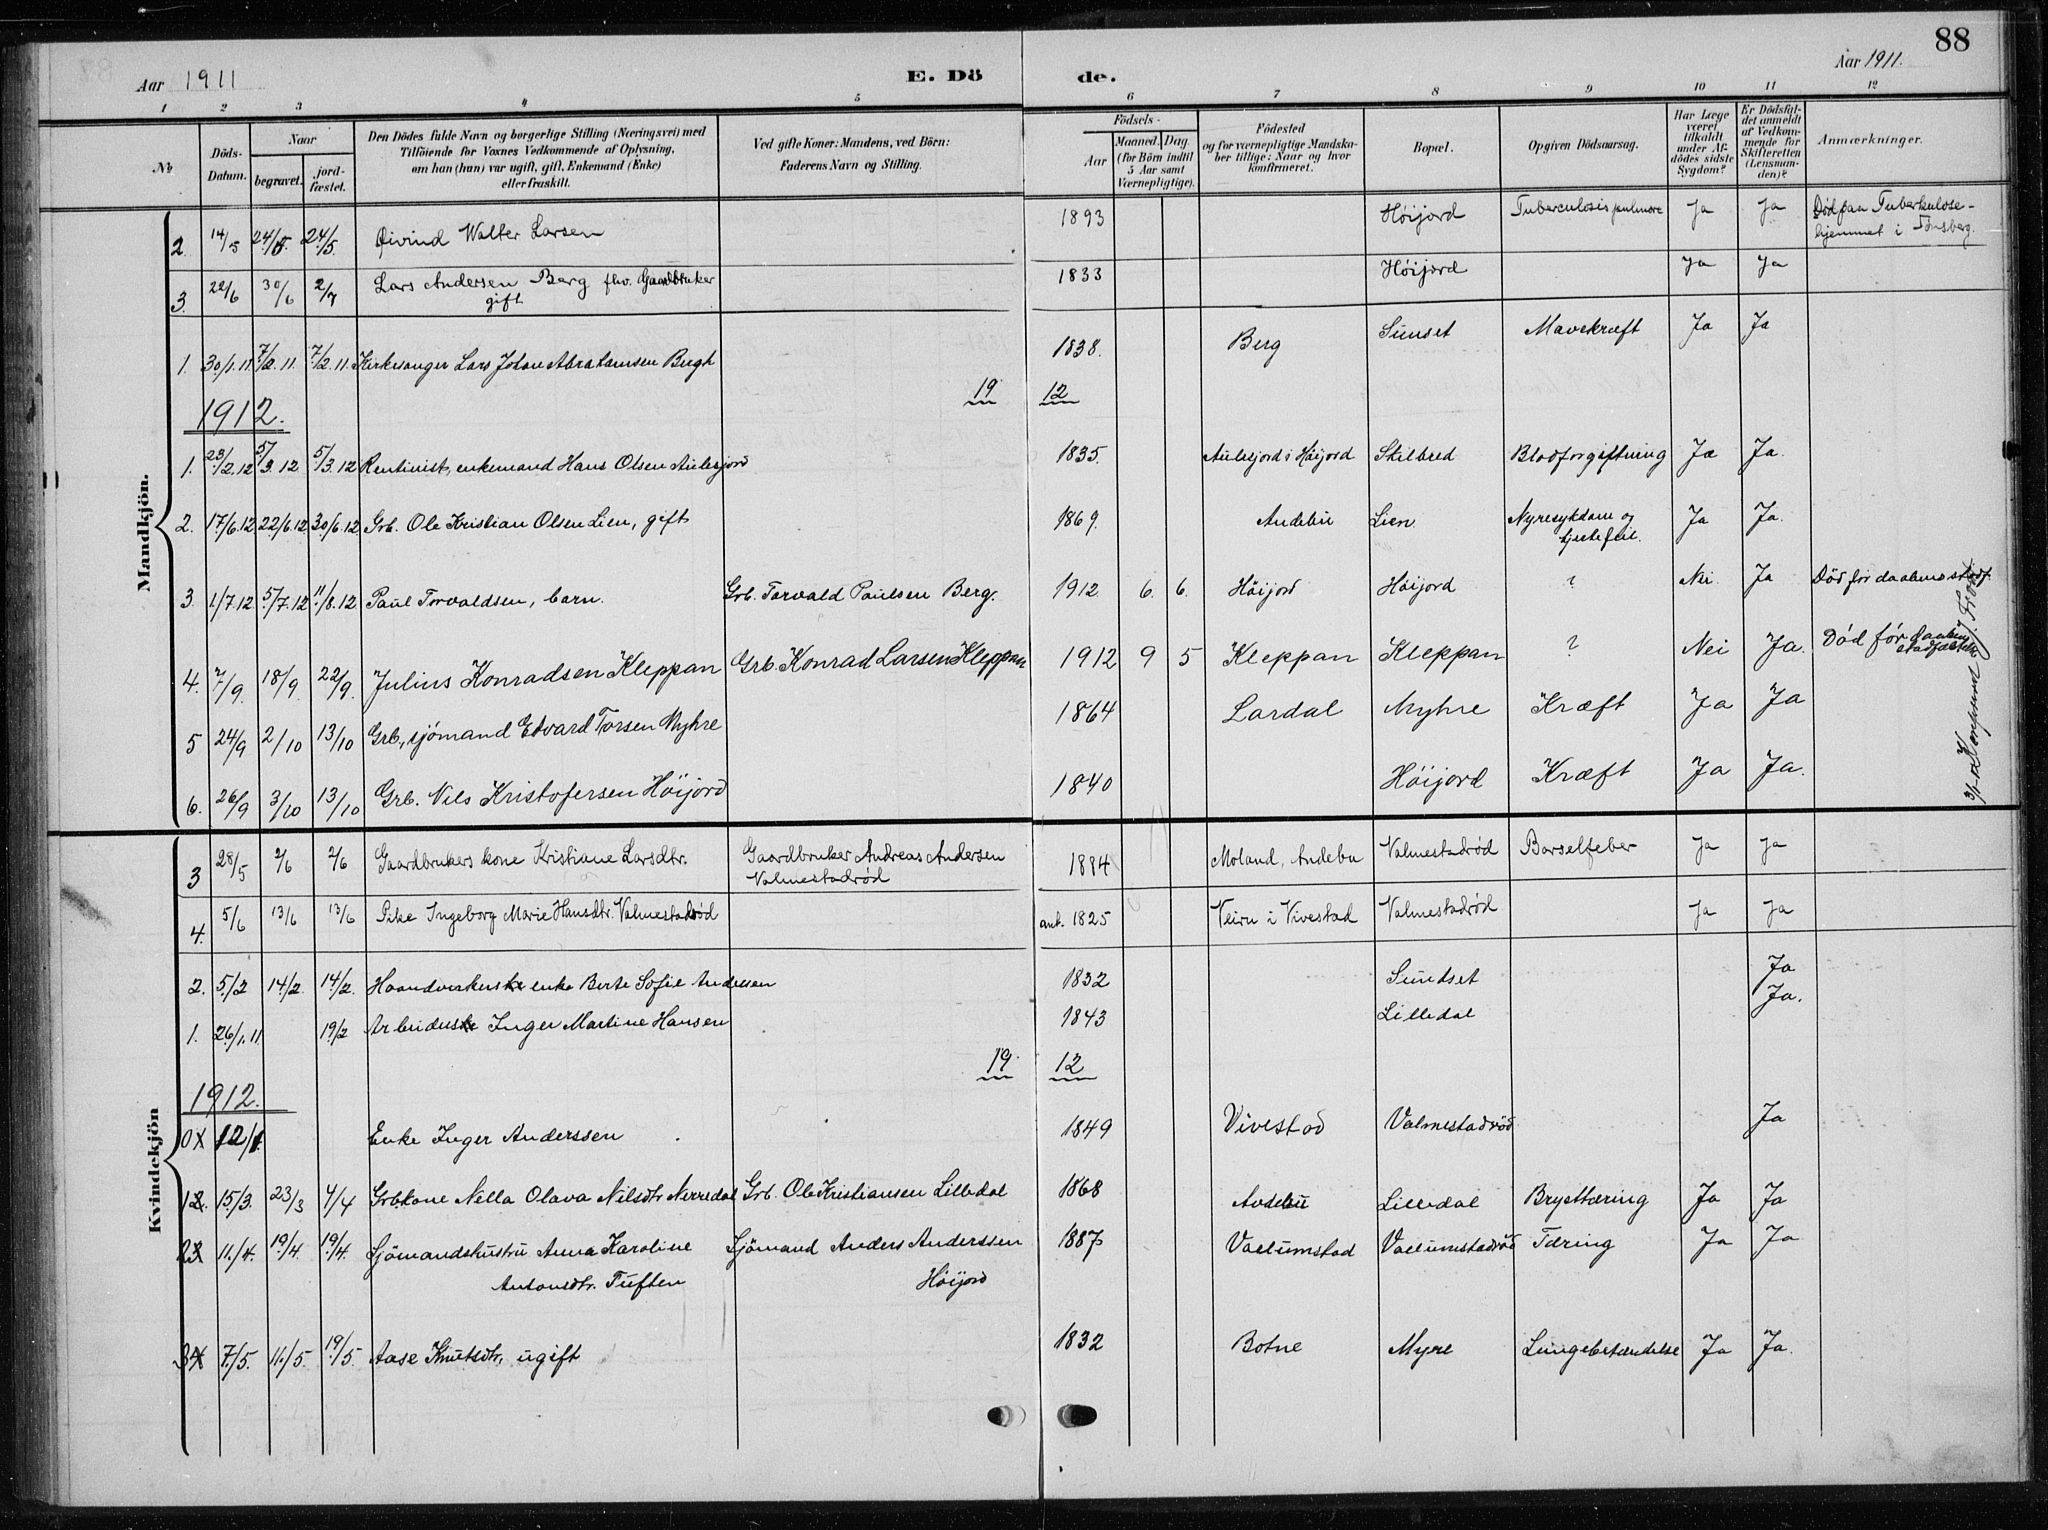 88
Aar 1911 E. Dö de. Aar 1911.
1 2 3 4 5 6 7 8 9 10 11 12
No
Döds-Datum.
Naar
begravet.
jord-fæstet.
Den Dödes fulde Navn og borgerlige Stilling (Næringsvei) med
Tilföiende for Voxnes Vedkommende af Oplysning,
om han (hun) var ugift, gift, Enkemand (Enke)
eller fraskilt.
Ved gifte Koner: Mandens, ved Börn:
Faderens Navn og Stilling.
Födsels-
Aar
Maaned. Dag
(for Börn indtil
5 Aar samt
Værnepligtige).
Födested
og for værnepligtige Mandska-
ber tillige: Naar og hvor
konfirmeret.
Bopæl.
Opgiven Dödsaarsag.
Har Læge
været
tilkaldt
under Af-
dödes sidste
Sygdom?
Er Dödsfal-
det anmeldt
af Vedkom-
mende for
Skifteretten
(Lensman-
den)?
Anmærkninger.
Mandkjön.
2. 14/5 24/5. 24/5. Øivind Walter Larsen 1893 Høijord Tuberculosis pulmore Ja Ja Död paa Tuberkulose-
hjemmet i Tönsberg.
3. 22/6 30/6 2/7 Lars Andersen Berg fhv. Gaardbruker 1833 Høijord Ja Ja
gift
1. 30/1.11. 7/2.11. 7/2.11. Kirkesanger Lars Johan Abrahamsen Bergh 1838. Berg Sunset Mavekræft Ja Ja
19 12
1912.
1. 23/2.12 5/3.12 5/3.12 Rentinist, enkemand Hans Olsen Aulesjord 1835. Aulesjord i Höijord Skilbred Blodforgiftning Ja Ja.
2. 17/6.12 22/6.12 30/6.12 Grb. Ole Kristian Olsen Lien, gift 1869. Andebu Lien Nyresykdom og Ja Ja.
hjertefeil.
3. 1/7.12 5/7.12 11/8.12 Paul Torvaldsen, barn. Grb. Torvald Paulsen Berg. 1912. 6. 6. Höijord Höijord ? Nei. Ja Död för daabens stadf.
4. 7/9. 18/9. 22/9. Julius Konradsen Kleppan Grb. Konrad Larsen Kleppan 1912 9 5 Kleppan Kleppan ? Nei Ja. Död för daabens
stadfæstelse
5 24/9 2/10 13/10 Grb., sjömand Edvard Torsen Myhre 1864 Lardal Myhre Kræft Ja Ja
6. 26/9 3/10 13/10 Grb. Nils Kristofersen Höijord 1840 Höijord Kræft Ja Ja.
Kvindekjön
3 28/5 2/6 2/6 Gaardbrukers kone Kristiane Larsdtr. Gaardbruker Andreas Andersen 1884 Moland, Andebu Valmestadrød Barselfeber Ja Ja
Valmestadrød
4. 5/6 13/6 13/6 Pike Ingeborg Marie Hansdtr. Valmestadrød ant. 1825 Veiru i Vivestad Valmestadrød Ja Ja
2. 5/2 14/2. 14/2. Haandverkerske enke Berte Sofie Andersen 1832 Sundset Ja
1. 26/1.11. 19/2 Arbeiderske Inger Martine Hansen 1843 Lilledal Ja.
19 12
1912.
0 12/1. Enke Inger Anderssen 1849 Vivestad Valmestadröd Ja
1 15/3. 23/3 4/4 Grbkone Nella Olava Nilsdtr Nerredal Grb. Ole Kristiansen Lilledal 1868 Andebu Lilledal Brysttæring Ja Ja
2 11/4. 19/4. 19/4. Sjömandshustru Anna Karoline Sjömand Anders Anderssen 1887 Vallumstad Vallumstadröd Tæring Ja Ja
Antonsdtr. Tuften Höijord
3 7/5. 11/5. 19/5. Aase Knutsdtr, ugift 1832 Botne Myre Lungebetændelse Ja Ja.